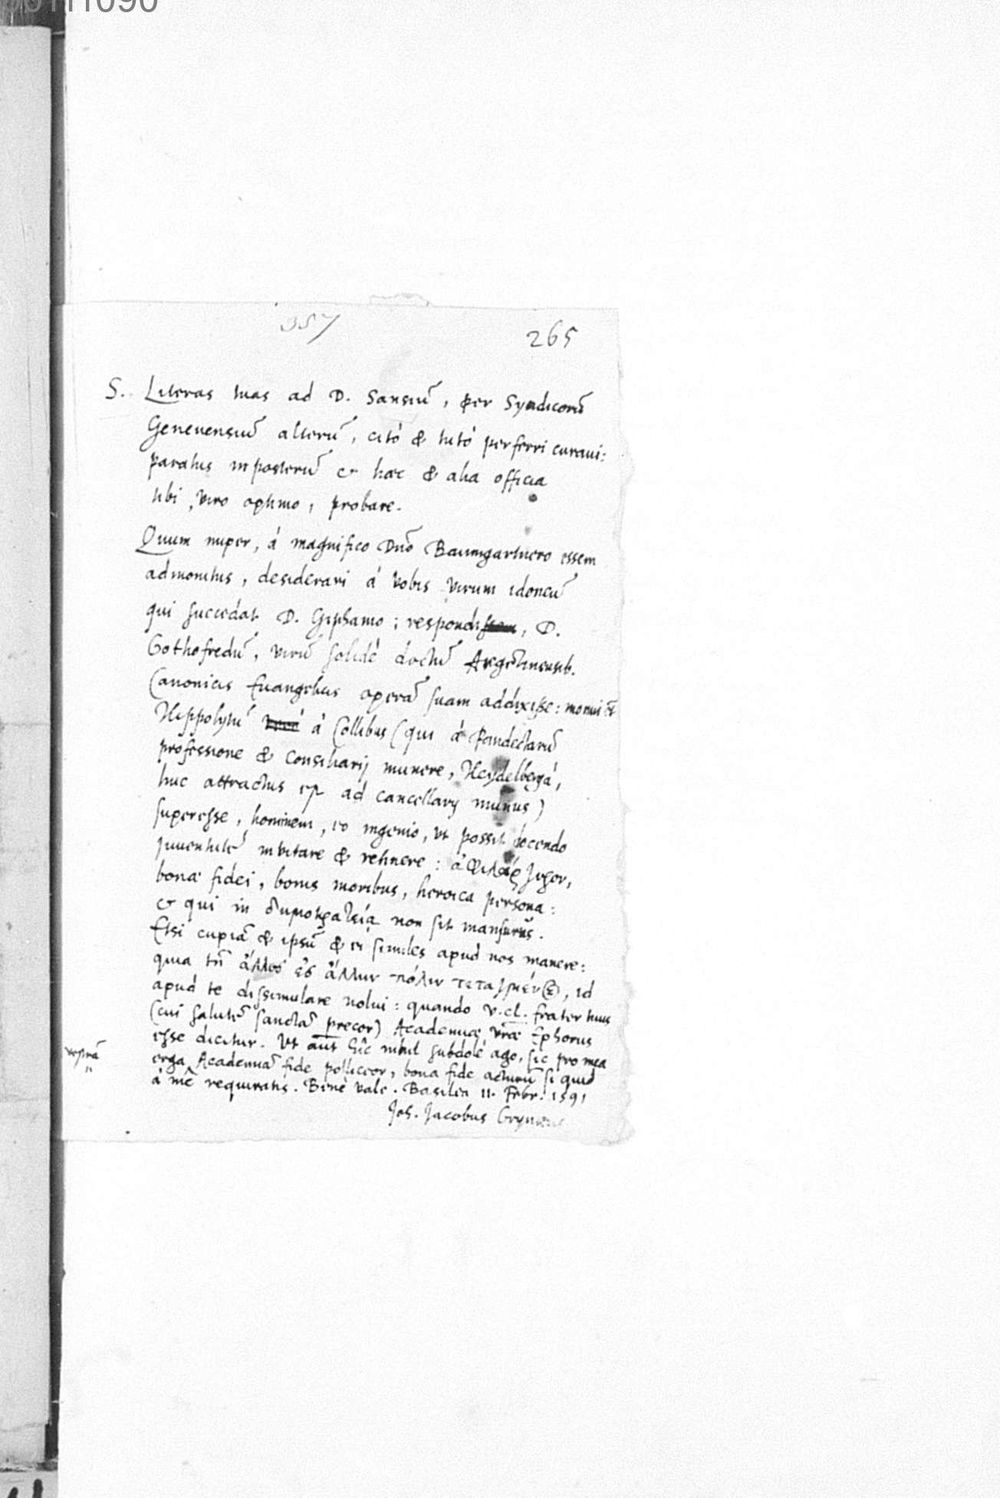 357
265
S. Literas tuas ad D. Sansiū, per Syndicorū
Geneuensiū alterū, citò & tutò perferri curaui:
paratus in posterū & haec & alia officia
tibi, viro optimo, probare.
Quum nuper, à magnifico Dño Baumgartnero essem
admonitus, desiderari à vobis virum idoneū
qui succedat D. Giphanio; respondi, D.
Gothofredū, virū solidè doctū Argētinensib.
Canonicis Euangelicis operā suam addixisse: monui
Hippolytū à Collibus (qui à Pandectarū
professione & consiliarij munere, Heydelbergâ,
huc attractus est ad cancellarij munus)
superesse, hominem, eo ingenio, vt possit docendo
juuentutē inuitare & retinere:
bonae fidei, bonis moribus, heroica persona:
& qui in δημοκρατείᾳ non sit mansurus.
Etsi cupiā & ipsū & ei similes apud nos manere:
quia tñ ἄλλος εἰς ἄλλην πόλιν, id
apud te dissimulare nolui: quando v. cl. frater tuus
(cui salutē sanctā precor) Academiae vrae Ephorus
esse dicitur. Vt aut hîc nihil subdolè ago, sic pro mea
vestrā
erga Academiā fide polliceor, bona fide acturū si quid
à mē requiratis. Benè vale. Basilea 11. Febr. 1591
Joh. Jacobus Grynaeus